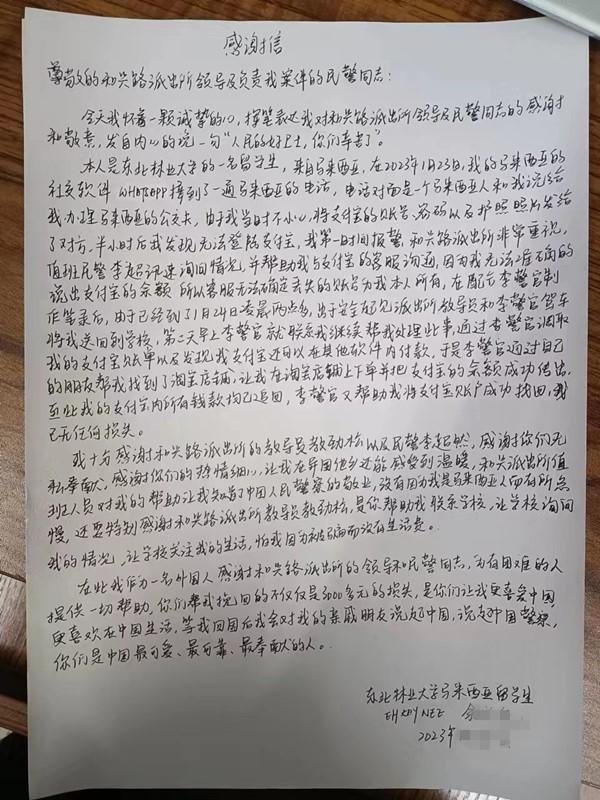 感谢信
尊敬的和兴路派出所领导及负责我案件的民警同志：
今天我怀着一颗诚挚的心，握笔表达我对和兴路派出所领导及民警同志的感谢
和敬意，发自内心的说一句“人民的好卫士，你们辛苦了”。
本人是东北林业大学的一名留学生，来自马来西亚，在2023年1月23日，我的马来西亚的
社交软件 WHATSAPP 接到了一通马来西亚的电话，电话对面是一个马来西亚人和我说给
我办理马来西亚的公交卡，由于我当时不小心，将支付宝的账号、密码以及护照照片发给
了对方，半小时后我发现无法登陆支付宝，我第一时间报警，和兴路派出所非常重视，
值班民警李超详速询问情况，并帮助我与支付宝的客服沟通，因为我无法准确的
说出支付宝的余额，所以客服无法确定丢失的账号为我本人所有，在配合李警官制
作笔录后，由于已经到了1月24日凌晨两点多，出于安全起见派出所教导员和李警官驾车
将我送回到学校，第二天早上李警官就联系我继续帮我处理此事，通过李警官调取
我的支付宝账单以及发现我支付宝还可以在其他软件内付款，于是李警官通过自己
的朋友帮我找到了淘宝店铺，让我在淘宝店铺上下单并把支付宝的余额成功转出，
至此我的支付宝内所有钱款均已追回，李警官又帮助我将支付宝账户成功找回，我
已无任何损失。
我十分感谢和兴路派出所的教导员教劲松以及民警李超然，感谢你们无
私奉献，感谢你们的热情细心，让我在异国他乡还能感受到温暖，和兴派出所值
班人员对我的帮助让我知道了中国人民警察的敬业，没有因为我是马来西亚人而有所怠
慢，还要特别感谢和兴路派出所教导员教劲松，是你帮助我联系学校，让学校询问
我的情况，让学校关注我的生活，怕我因为被骗而没有生活费。
在此我作为一名外国人感谢和兴路派出所的领导和民警同志，为有困难的人
提供一切帮助，你们帮我挽回的不仅仅是3000多元的损失，是你们让我更喜爱中国，
更喜欢在中国生活，等我回国后我会对我的亲戚朋友说好中国，说好中国警察，
你们是中国最可爱、最可靠、最奉献的人。
东北林业大学马来西亚留学生
EH
2023年